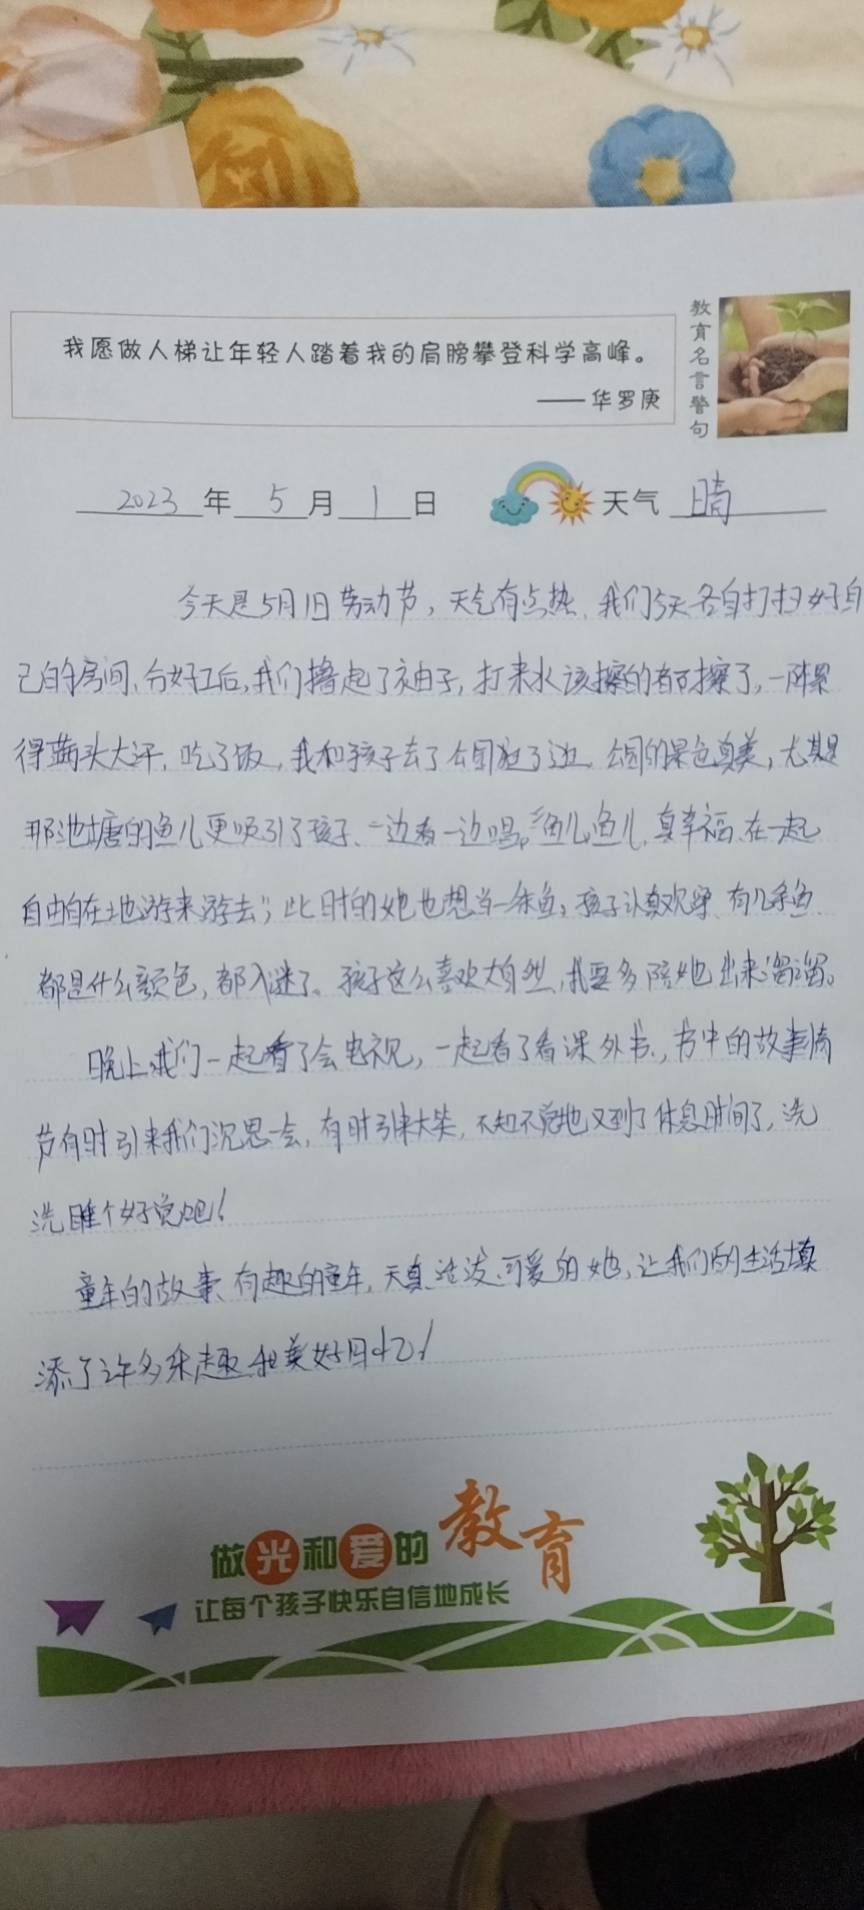 我愿做人梯让年轻人踏着我的肩膀攀登科学高峰。
——华罗庚
教育名言警句
2023年5月1日 天气 晴
今天是5月1日劳动节，天气有点热、我们今天各自打扫好自
己的房间、分好工后，我们撸起了袖子，打来水该擦的都擦了，一阵累
得满头大汗，吃了饭，我和孩子去了公园逛了逛 公园的景色真美，尤其是
那池塘的鱼儿更吸引了孩子、一边看一边唱。“鱼儿鱼儿，真幸福、在一起
自由自在地游来游去”；此时的她也想当一条鱼，孩子认真观察、有几条鱼
都是什么颜色，都入迷了。孩子这么喜欢大自然，我要多陪她出来溜溜。
晚上我们一起看了会电视，一起看了看课外书，书中的故事情
节有时引来我们沉思一会，有时引来大笑，不知不觉地又到了休息时间了，洗
洗睡个好觉吧！
童年的故事、有趣的童年，天真活泼、可爱的她、让我们的生活填
添了许多乐趣和美好回忆！
做光和爱的教育
让每个孩子快乐自信地成长